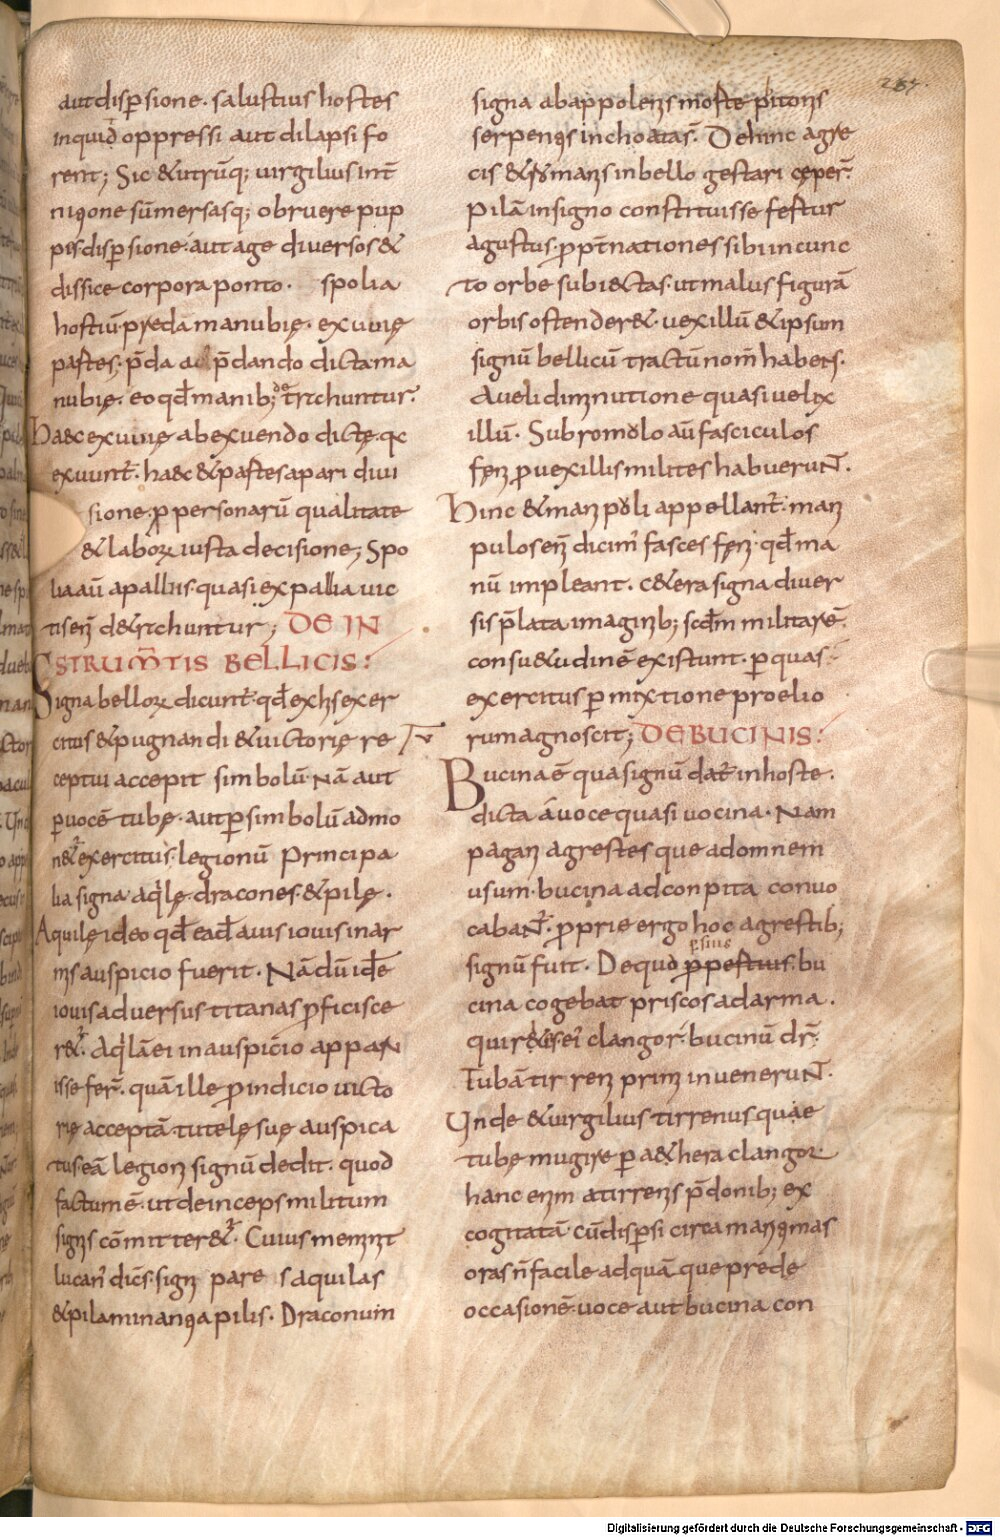 267.
aut disp̄sione. salustius hostes
inquid oppressi aut dilapsi fo
rent; Sic & utrūq; uirgilius int̄
niꝯone sūmersasq; obruere pup
pis disp̄sione. aut age diuersos &
dissice corpora ponto. spolia
hostiū. pręda manubię. exuuię
partes. p̄da a p̄dando dicta. ma
nubię. eo qđ manib; detrahuntur.
haec exuuię ab exuendo dictę. qc
exuunt̄. haec & partes a pari diui
sione. ꝓ personarū qualitate
& laborꝝ iusta decisione; Spo
lia aū a palliis. quasi ex pallia uic
tis enī detrahuntur; DE IN
STRUM̄TIS BELLICIS:
Signa bellorꝝ dicunt̄. qđ ex his exer
citus & pugnandi & uictorię re
ceptui accepit simbolū. Nā aut
p uocē tubę. aut p simbolū admo
n&ur exercitus. legionū Principa
lia signa. aqͥlę dracones. & pilę.
Aquilę ideo qđ eađ auis iouis in ar
mis auspicio fuerit. Nā dū idē
iouis aduersus titanas ꝓficisce
r&ur. Aqͥlā ei in auspicio appar
isse fer̄. quā ille ꝓ indicio uicto
rię acceptā tutelę suę auspica
tus. eā legioni signū dedit. quod
factum ē. ut deinceps militum
signis cōmitter&ur. Cuius meminit
lucan᾽ dic̄s. signi pares aquilas
& pila minanꝯa pilis. Draconum
signa ab appolenis morte phitonis
serpenꝯs inchoatas. Dehinc a gre
cis & romanis in bello gestari cęper̄.
Pilā in signo constituisse fertur
agustus. ꝓpt̄ nationes sibi in cunc
to orbe subiectas. ut malus figurā
orbis ostender&. uexillū & ipsum
signū bellicū tractū nom̄ habens.
A ueli diminutione quasi uelix
illū. Sub romolo aū fasciculos
fęni ꝓ uexillis milites habuerunt.
Hinc & manipoli appellant̄. mani
pulos enī dicim᾽ fasces fęni. qđ ma
nū impleant. cetera signa diuer
sis p̄lata imaginib; scđm militarē.
consuetudinē existunt. p quas
exercitus p mixtione proelio
rum agnoscit; DE BUCINIS:
Bucina ē qua signū dat̄ in hoste.
dicta a uoce quasi uocina. Nam
pagani agrestes que ad omnem
usum. bucina ad conpita conuo
cabant̄. ꝓprie ergo hoc agrestib;
persius
signū fuit. De quo ꝓpertius. bu
cina cogebat priscos ad arma.
clangor. bucinū dr̄.
Tubā tirreni primi inuenerunt.
Unde & uirgilius tirrenus quae
tubę mugire p aethera clangor
hanc enim a tirrenis p̄donib; ex
cogitatā. cū dispsi circa mariꝯmas
oras n̄ facile ad quā que prede
occasionē. uoce aut bucina con
Digitalisierung gefördert durch die Deutsche Forschungsgemeinschaft - DFG